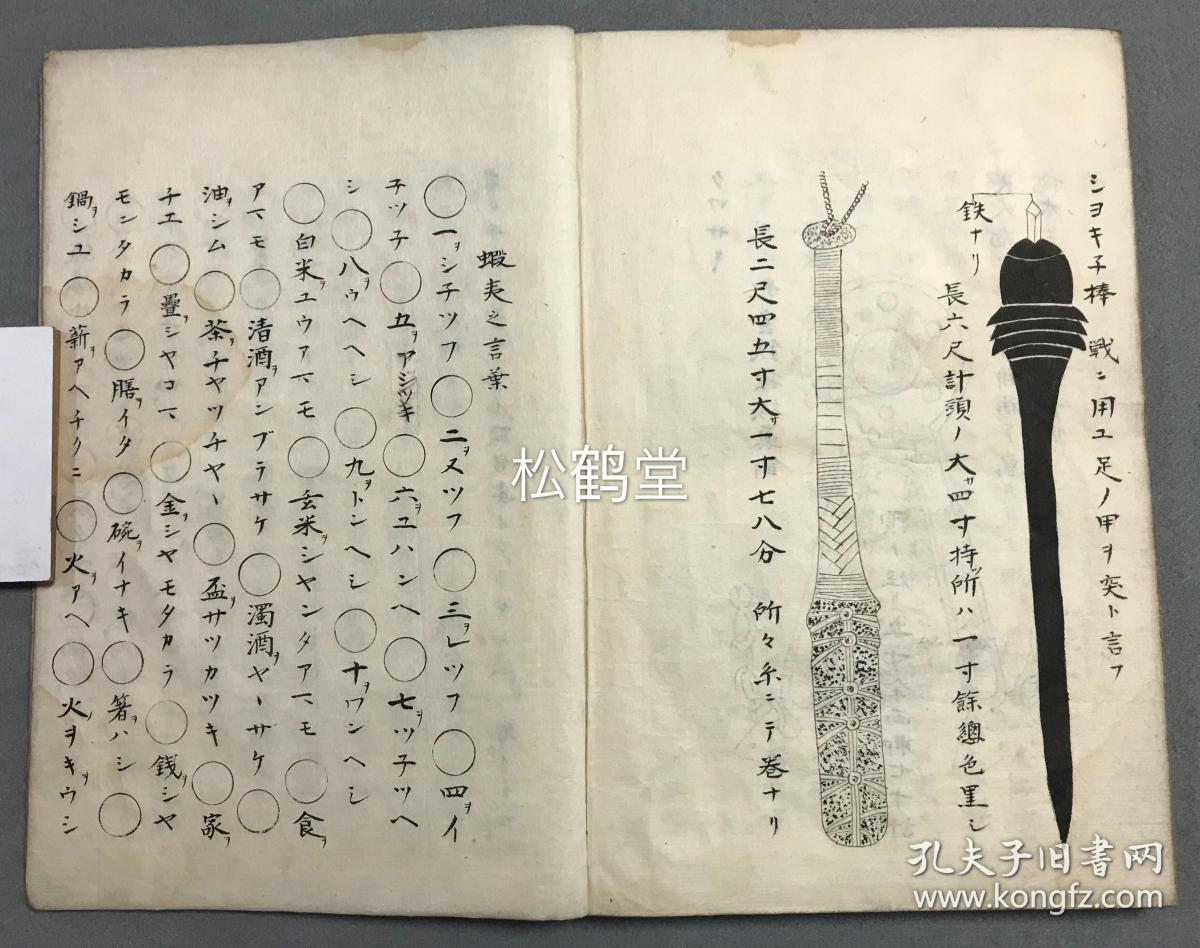 シヨキ子棒 戦ニ用ユ足ノ甲ヲ突ト言フ
鉄ナリ
長六尺計頭ノ大サ四寸持ツ所ハ一寸餘總色黒シ
長二尺四五寸大サ一寸七八分 所々糸ニテ巻ナリ
蝦夷之言葉
○一ヲシチツフ○二ヲヌツフ○三ヲレツフ○四ヲイ
子ツ子○五ヲアシツキ○六ヲユハンヘ○七ヲツ子ツヘ
シ○八ヲウヘヘシ○九ヲトンヘシ○十ヲワンヘシ
○白米ユウアマモ○玄米シヤンタアマモ○食ヲ
アマモ○清酒ヲアンブラサケ○濁酒ヲヤーザケ○
油ヲシム○茶ヲチヤツチヤー○盃ヲサツカツキ○家ヲ
チエ○疊ヲシヤコマ○金ヲシヤモタカラ○銭ヲシヤ
モンタカラ○膳ヲイタ○碗ヲイナキ○箸ヲハシ○
鍋ヲシユ○薪ヲアヘチクニ○火ヲアヘ○火ノヲキヲウシ
松鹤堂
孔夫子旧书网
www.kongfz.com